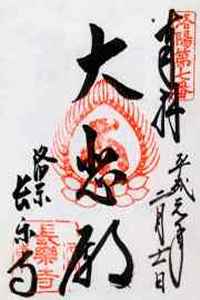 洛陽第七番
奉拝
平成元年
二月十一日
大悲殿
洛東
長楽寺
長樂寺